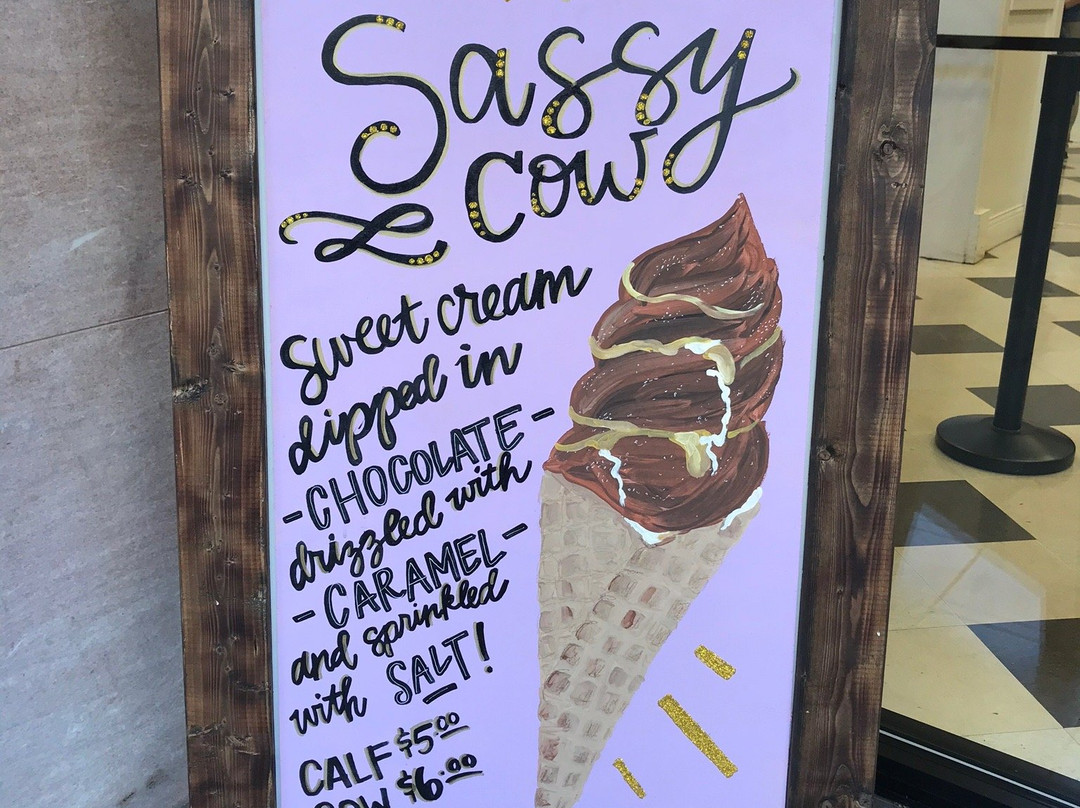 Sassy
Cow
Sweet cream
dipped in
-CHOCOLATE-
drizzled with
-CARAMEL-
and sprinkled
with SALT!
CALF $5.00
COW $6.00